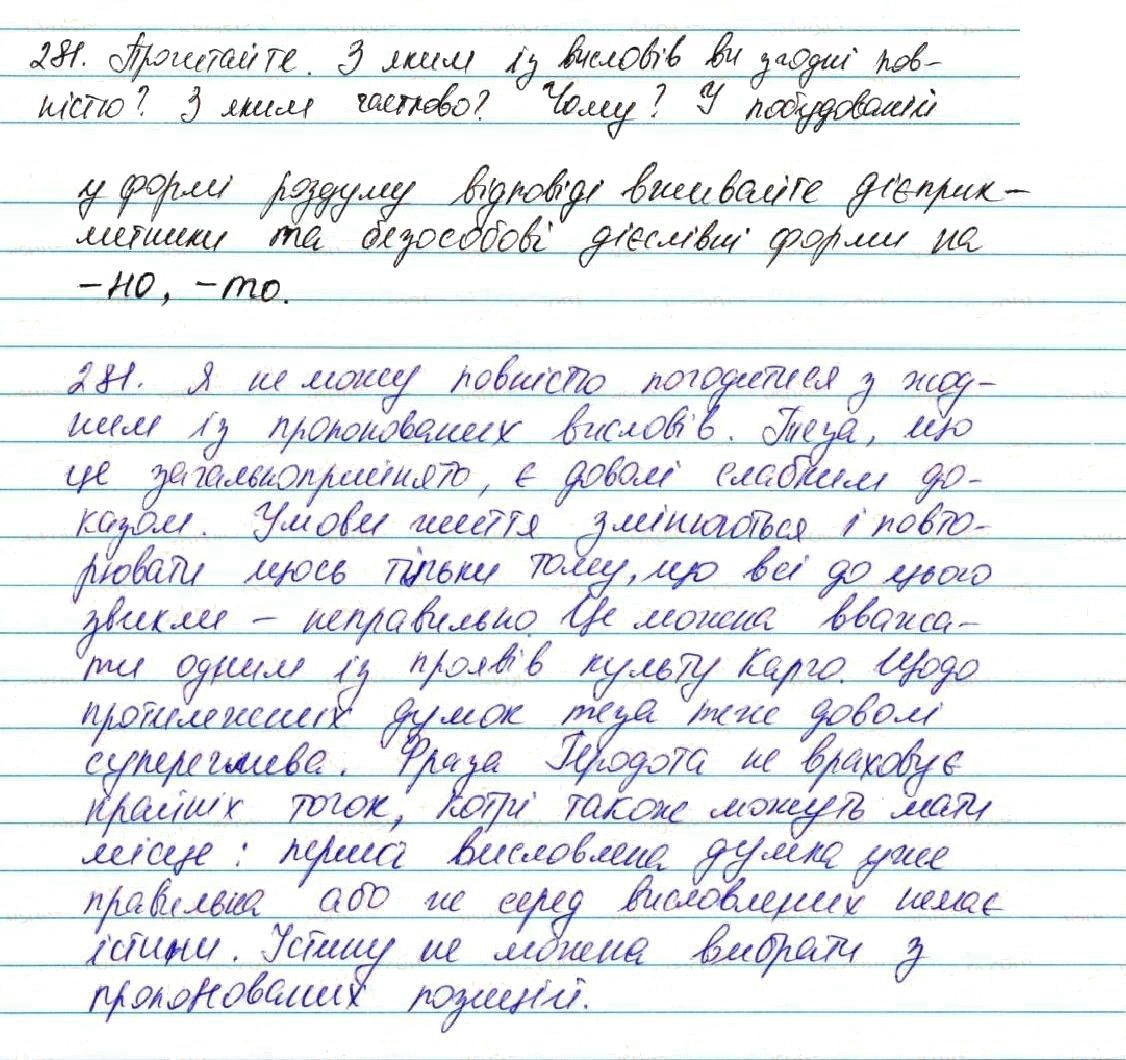 281. Прочитайте. З яким із висловів ви згодні пов-
ністю? З яким частково? Чому? У побудованій
у формі роздуму відповіді вживайте дієприк-
метники та безособові дієслівні форми на
-но, -то.
281. Я не можу повністю погодитися з жод-
ним із пропонованих висловів. Теза, що
це загальноприйнято, є доволі слабким до-
казом. Умови життя змінюються і повто-
рювати щось тільки тому, що всі до цього
звикли - неправильно. Це можна вважа-
ти одним із проявів культу Карго. Щодо
протилежних думок теза теж доволі
суперечлива. Фраза Геродота не враховує
крайніх точок, котрі також можуть мати
місце: перша висловлена думка уже
правильна або ж серед висловлених немає
істини. Істину не можна вибрати з
пропонованих позицій.